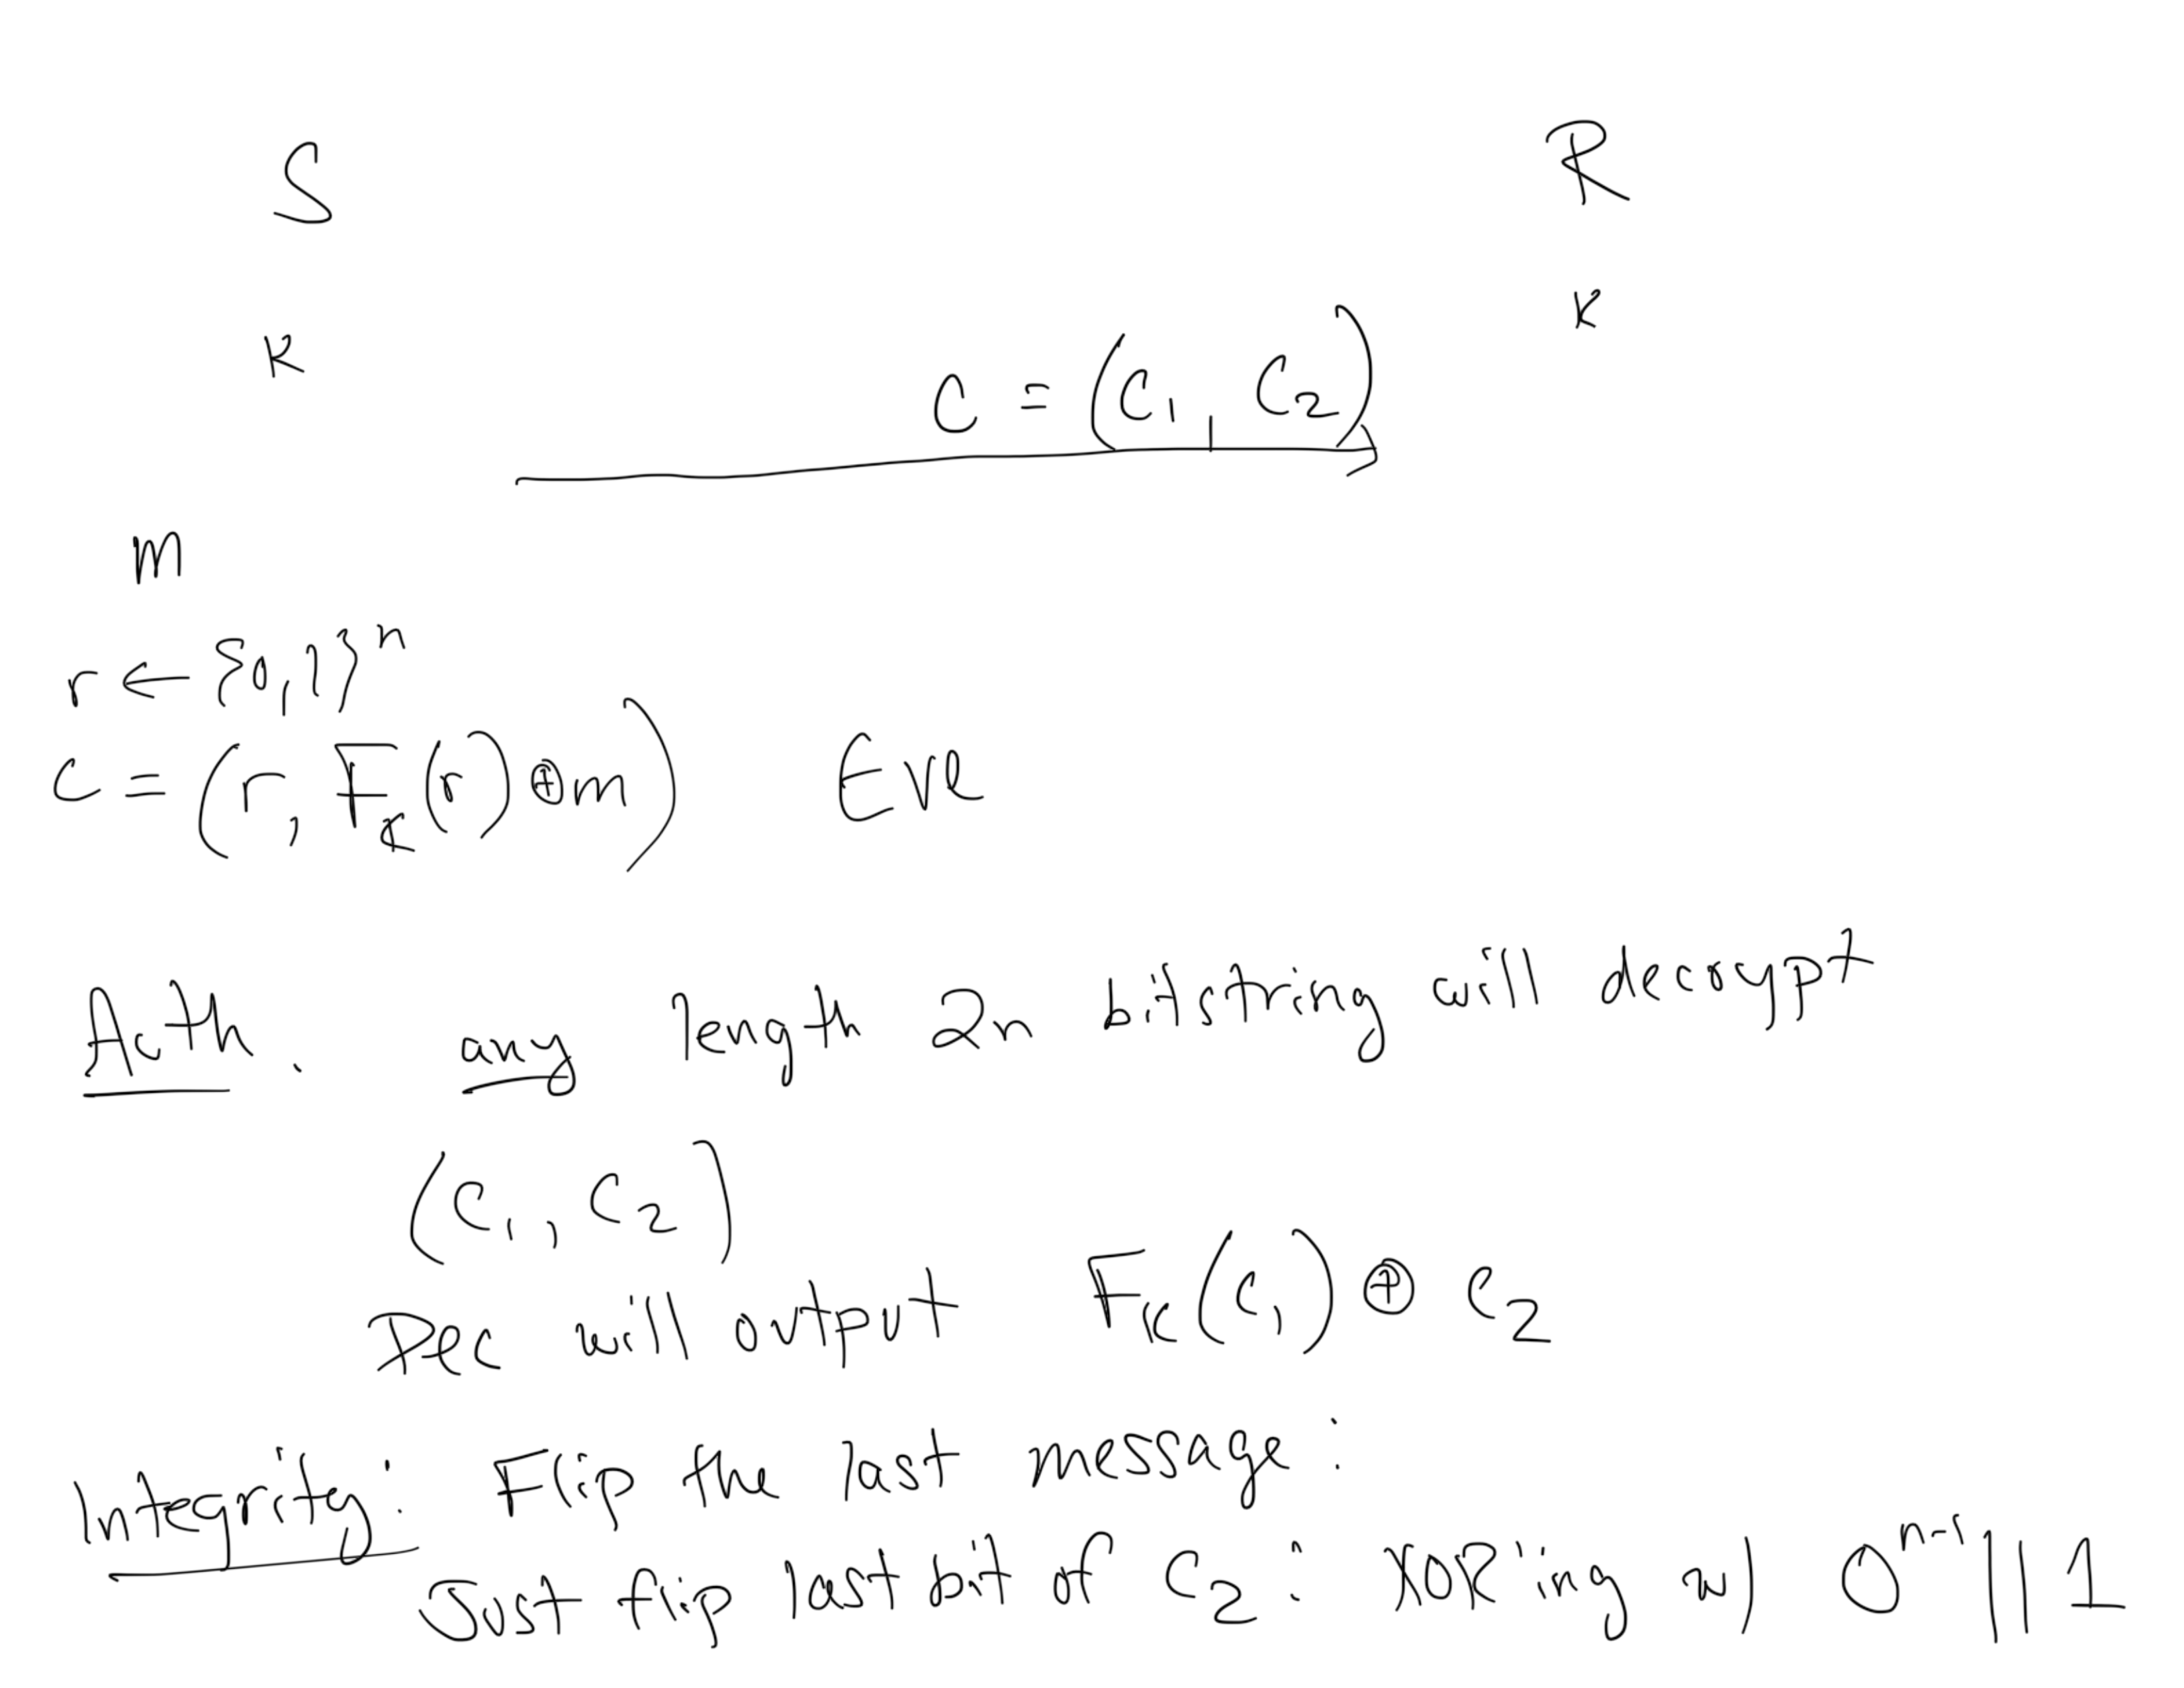 S R
K K
C = (C₁, C₂)
m
r ← {0,1}ⁿ
C = (r, F_K(r) ⊕ m) Eve
Auth. any length 2n bitstring will decrypt
(C₁, C₂)
Dec will output F_K(C₁) ⊕ C₂
Integrity: Flip the last message:
Just flip last bit of C₂: XORing w/ 0ⁿ⁻¹||1